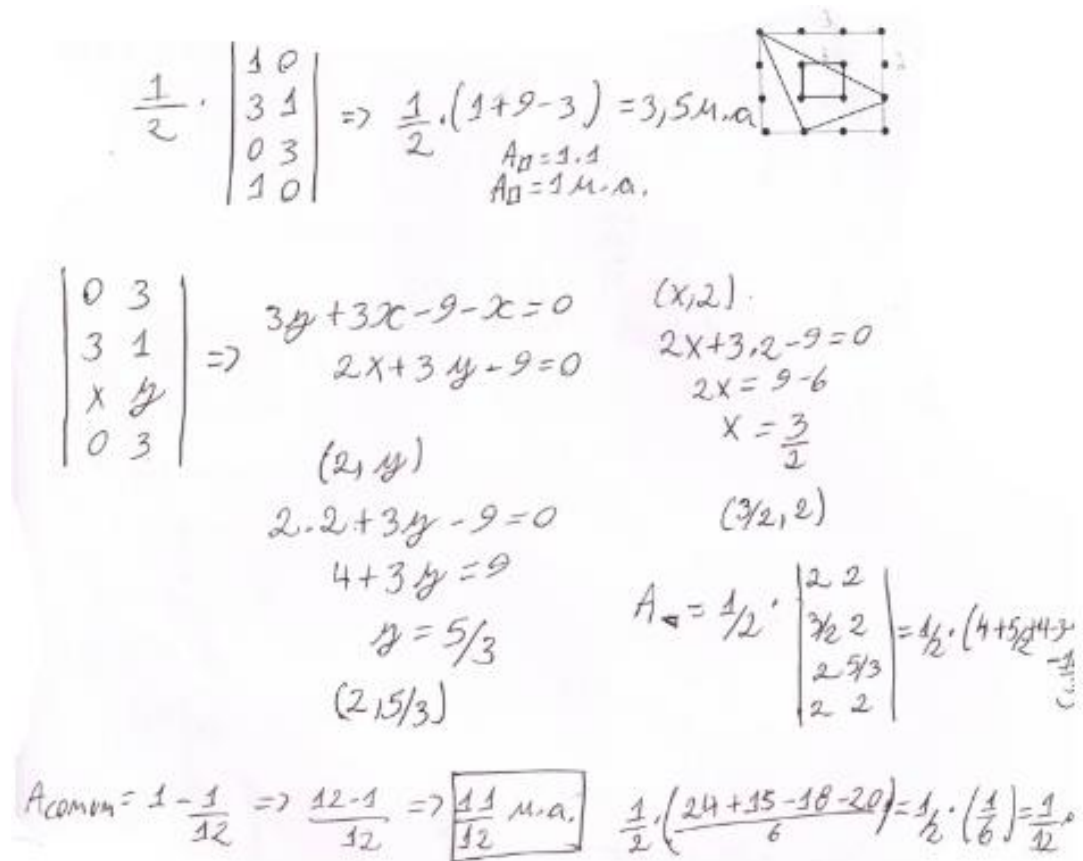 1/2 · | 1 0 |
| 3 1 |
| 0 3 |
| 1 0 | => 1/2 · (1+9-3) = 3,5 u.a
A□ = 1.1
A□ = 1 u.a.
3
| 0 3 |
| 3 1 |
| x y |
| 0 3 | =>
3y + 3x - 9 - x = 0
2x + 3y - 9 = 0
(2, y)
2.2 + 3y - 9 = 0
4 + 3y = 9
y = 5/3
(2, 5/3)
(x, 2).
2x + 3.2 - 9 = 0
2x = 9 - 6
x = 3/2
(3/2, 2)
A = 1/2 · | 2 2 |
| 3/2 2 |
| 2 5/3 |
| 2 2 | = 1/2 · (4 + 5/2 + 4 - 3 -
1/2 · (24 + 15 - 18 - 20)/6 = 1/2 · (1/6) = 1/12 ·
Acomum = 1 - 1/12 => 12-1/12 => 11/12 u.a.